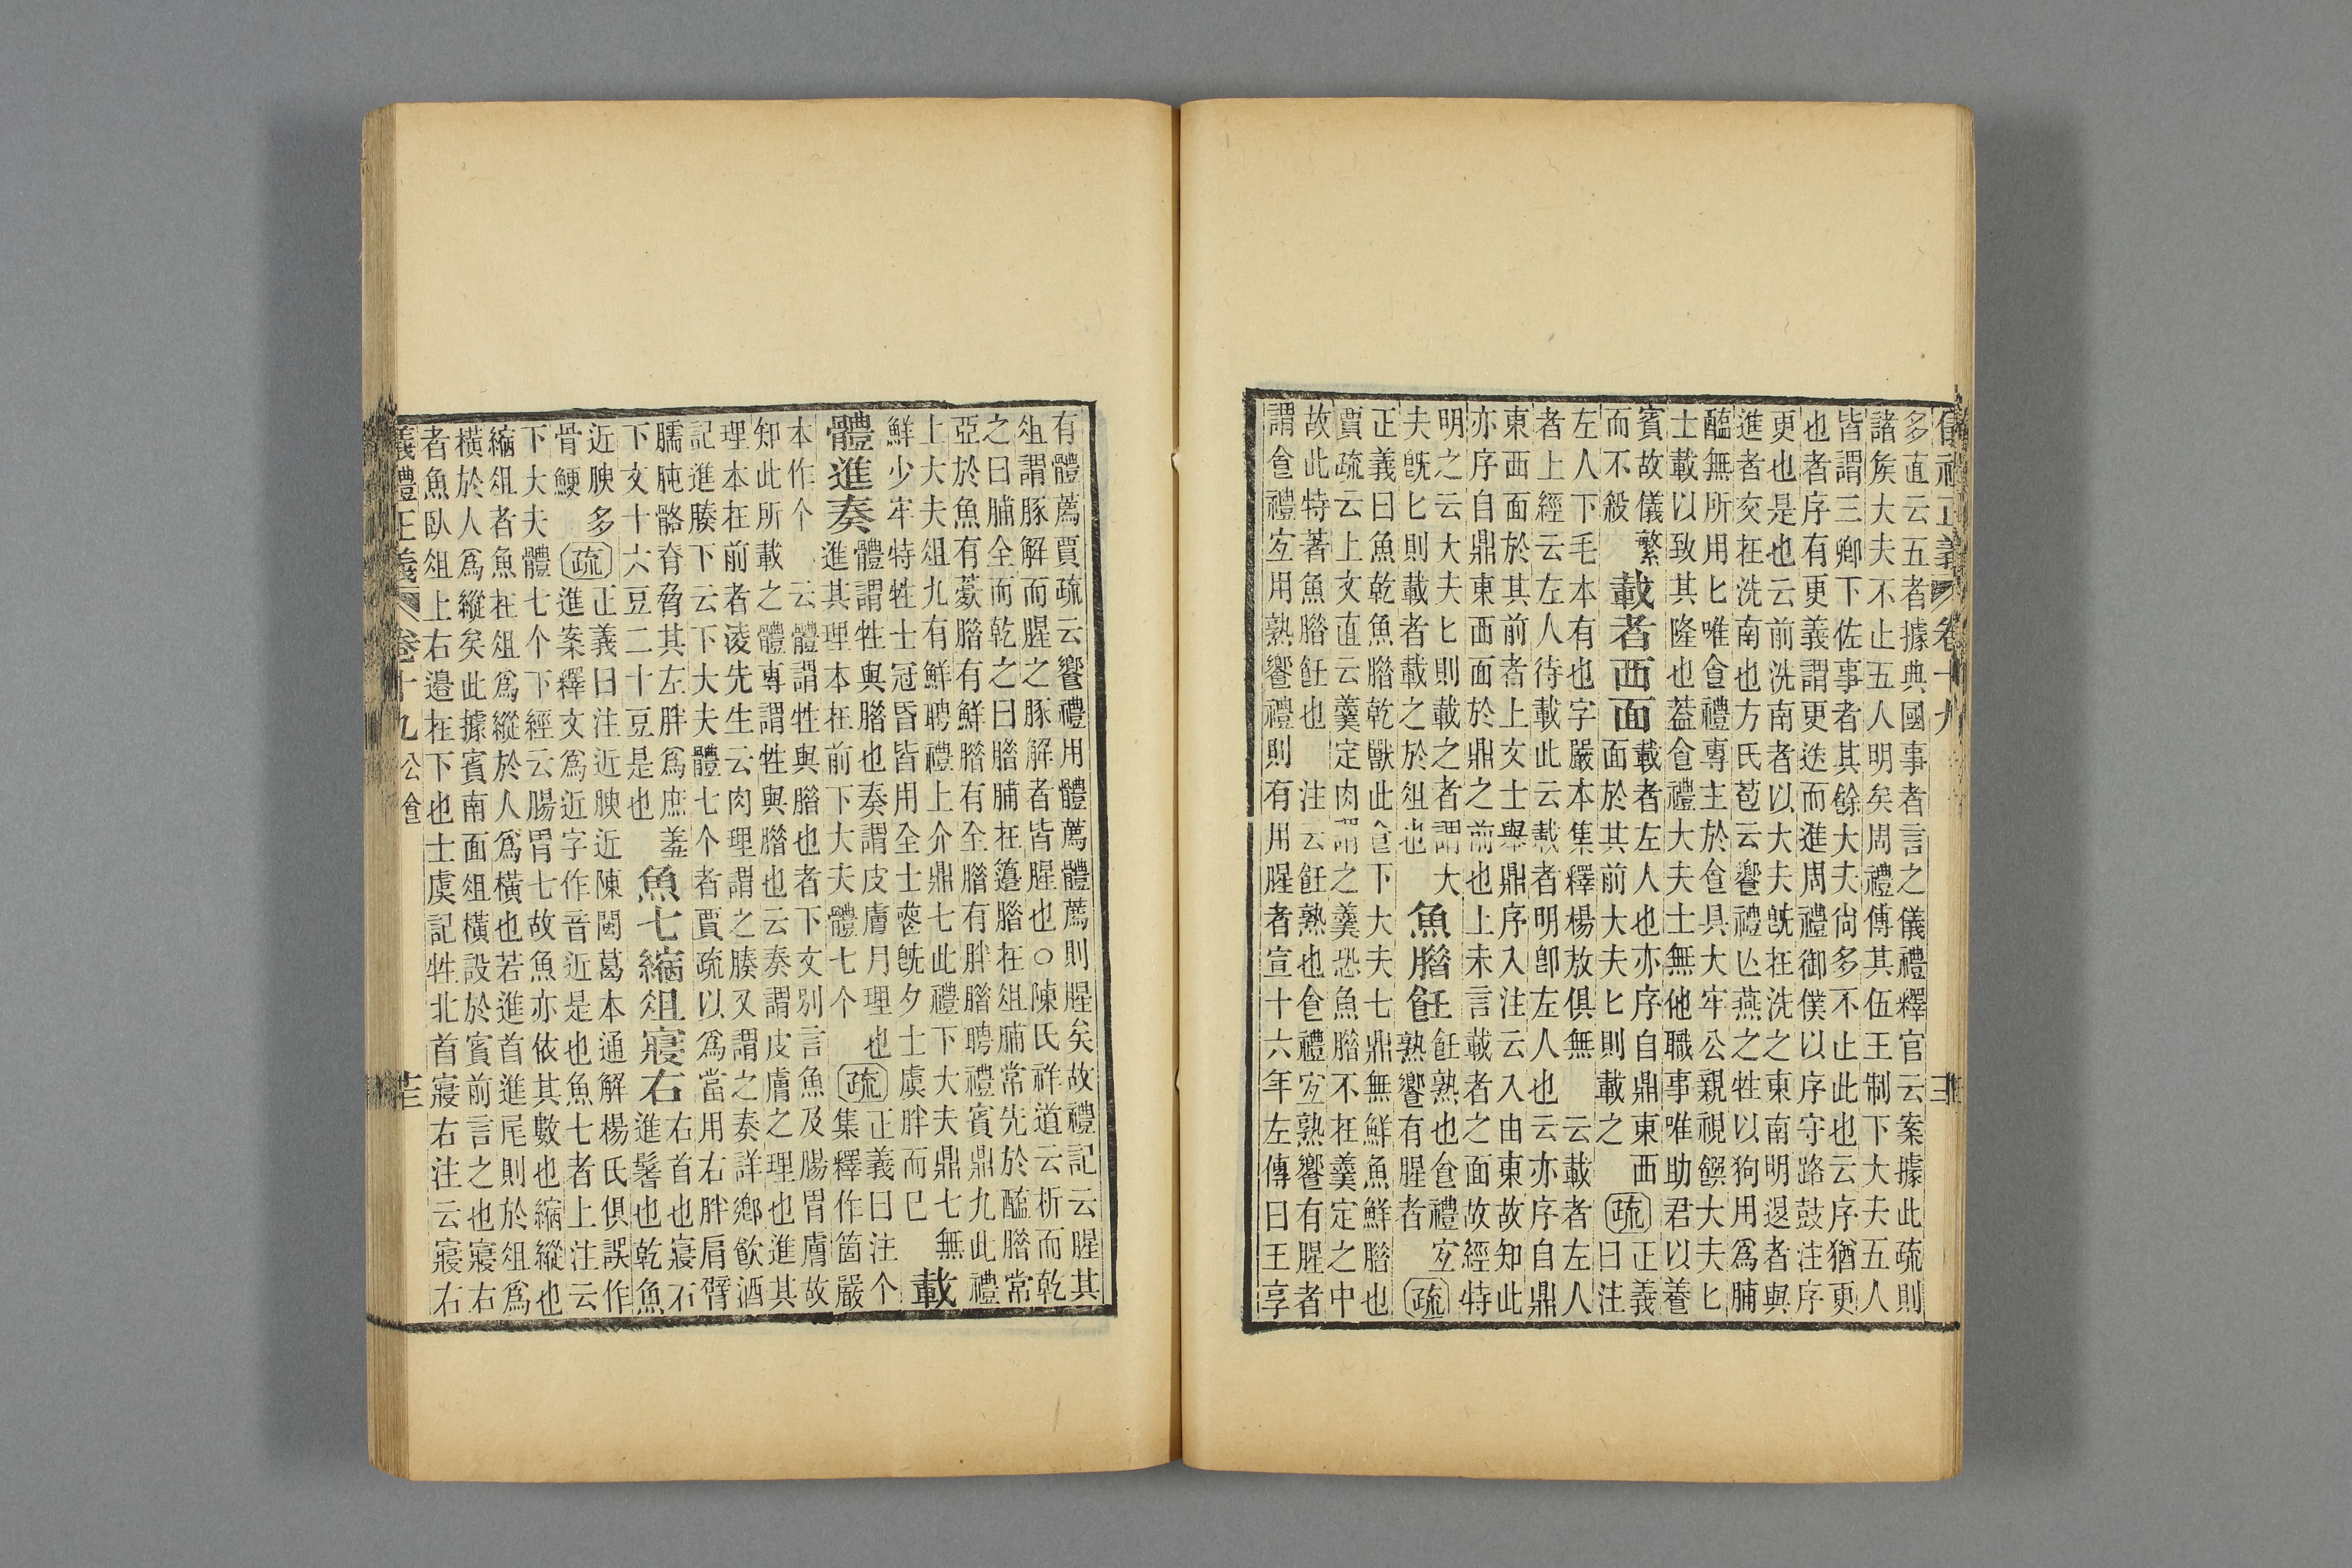 正義 卷十九
多直云五者據典國事者言之儀禮釋官云案據此疏則
諸矦大夫不止五人明矣周禮傅其伍王制下大夫五人
皆謂三卿下佐事者其餘大夫尙多不止此也云序猶更
也者序有更義謂更迭而進周禮御僕以序守路鼓注序
更也是也云前洗南者以大夫旣在洗之東南明退者與
進者交在洗南也方氏苞云饗禮亾燕之牲以狗用爲脯
醢無所用匕唯食禮專主於食具大牢公親視饌大夫匕
士載以致其隆也葢食禮大夫士無他職事唯助君以養
賓故儀繁
而不殺
載者西面
載者左人也亦序自鼎東西
面於其前大夫匕則載之
疏
正義
曰注
左人下毛本有也字嚴本集釋楊放俱無 云載者左人
者上經云左人待載此云載者明卽左人也云亦序自鼎
東西面於其前者上文士舉鼎序入注云入由東故知此
亦序自鼎東西面於鼎之前也上未言載者之面故經特
明之云大夫匕則載之者謂大
夫旣匕則載者載之於俎也
魚腊飪
飪熟也食禮宜
熟饗有腥者
疏
正義曰魚乾魚腊乾獸此食下大夫七鼎無鮮魚鮮腊也
賈疏云上文直云羹定肉謂之羹恐魚腊不在羹定之中
故此特著魚腊飪也 注云飪熟也食禮宜熟饗有腥者
謂食禮宜用熟饗禮則有用腥者宣十六年左傳曰王享
有體薦賈疏云饗禮用體薦體薦則腥矣故禮記云腥其
俎謂豚解而腥之豚解者皆腥也○陳氏祥道云析而乾
之曰脯全而乾之曰腊脯在籩腊在俎脯常先於醢腊常
亞於魚有薧腊有鮮腊有全腊有胖腊聘禮賓鼎九此禮
上大夫俎九有鮮聘禮上介鼎七此禮下大夫鼎七無
鮮少牢特牲士冠昏皆用全士喪旣夕士虞胖而已
載
體進奏
體謂牲與腊也奏謂皮膚月理也
進其理本在前下大夫體七个
疏
正義曰注个
集釋作箇嚴
本作个 云體謂牲與腊也者下文別言魚及腸胃膚故
知此所載之體專謂牲與腊也云奏謂皮膚之理也進其
理本在前者淩先生云肉理謂之腠又謂之奏詳鄉飮酒
記進腠下云下大夫體七个者賈疏以爲當用右胖肩臂
臑肫胳脊脅其左胖爲庶羞
下文十六豆二十豆是也
魚七縮俎寢右
右首也寢右
進鬐也乾魚
近腴多
骨鯁
疏
正義曰注近腴近陳閩葛本通解楊氏俱誤作
進案釋文爲近字作音近是也魚七者上注云
下大夫體七个下經云腸胃七故魚亦依其數也縮縱也
縮俎者魚在俎爲縱於人爲橫也若進首進尾則於俎爲
橫於人爲縱矣此據賓南面俎橫設於賓前言之也寢右
者魚臥俎上右邊在下也士虞記牲北首寢右注云寢右
儀禮正義 卷十九 公食